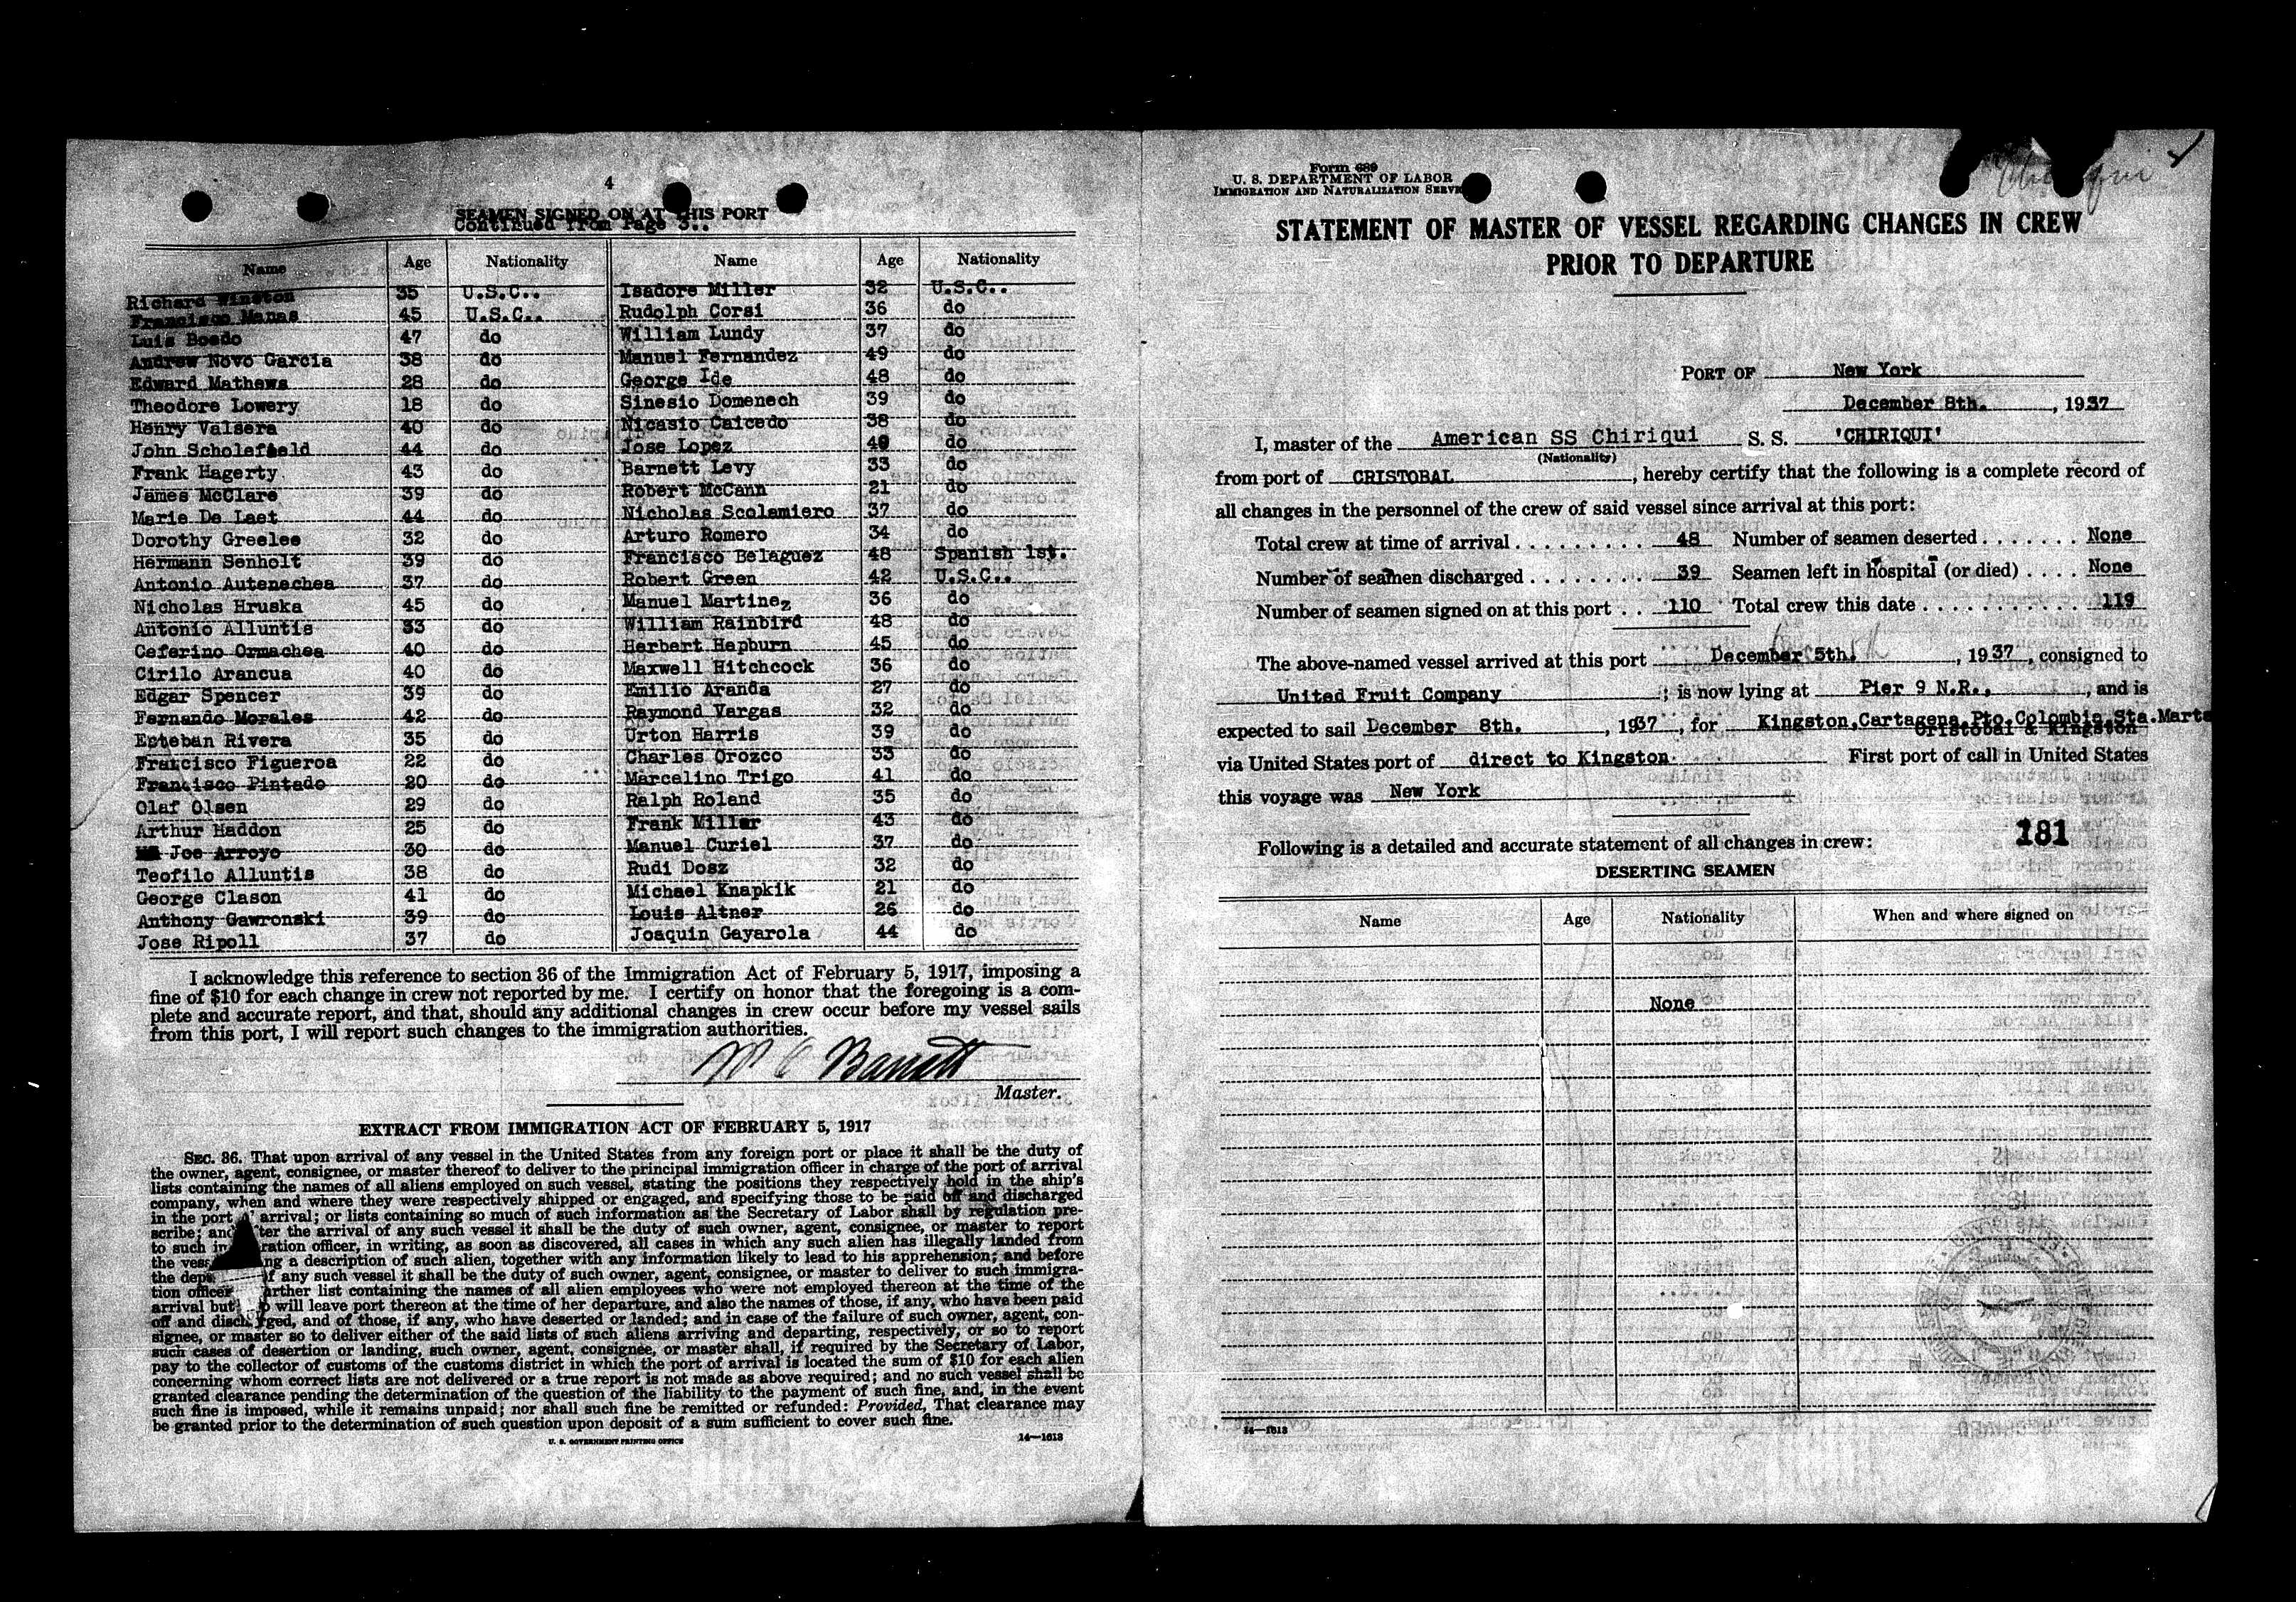 4
SEAMEN SIGNED ON AT THIS PORT
Continued from Page 3..
Name Age Nationality Name Age Nationality
Richard Winston 35 U.S.C.. Isadore Miller 32 U.S.C..
Francisco Manas 45 U.S.C.. Rudolph Corsi 36 do
Luis Boedo 47 do William Lundy 37 do
Andrew Novo Garcia 38 do Manuel Fernandez 49 do
Edward Mathews 28 do George Ide 48 do
Theodore Lowery 18 do Sinesio Domenech 39 do
Henry Valsera 40 do Nicasio Caicedo 38 do
John Scholefield 44 do Jose Lopez 40 do
Frank Hagerty 43 do Barnett Levy 33 do
James McClare 39 do Robert McCann 21 do
Marie De Laet 44 do Nicholas Scolamiero 37 do
Dorothy Greelee 32 do Arturo Romero 34 do
Hermann Senholt 39 do Francisco Belaguez 48 Spanish 1st.
Antonio Autenechea 37 do Robert Green 42 U.S.C..
Nicholas Hruska 45 do Manuel Martinez 36 do
Antonio Alluntis 33 do William Rainbird 48 do
Ceferino Ormachea 40 do Herbert Hepburn 45 do
Cirilo Arancua 40 do Maxwell Hitchcock 36 do
Edgar Spencer 39 do Emilio Aranda 27 do
Fernando Morales 42 do Raymond Vargas 32 do
Esteban Rivera 35 do Urton Harris 39 do
Francisco Figueroa 22 do Charles Orozco 33 do
Francisco Pintado 20 do Marcelino Trigo 41 do
Olaf Olsen 29 do Ralph Roland 35 do
Arthur Haddon 25 do Frank Miller 43 do
Joe Arroyo 30 do Manuel Curiel 37 do
Teofilo Alluntis 38 do Rudi Dosz 32 do
George Clason 41 do Michael Knapkik 21 do
Anthony Gawronski 39 do Louis Altner 26 do
Jose Ripoll 37 do Joaquin Gayarola 44 do
I acknowledge this reference to section 36 of the Immigration Act of February 5, 1917, imposing a
fine of $10 for each change in crew not reported by me. I certify on honor that the foregoing is a com-
plete and accurate report, and that, should any additional changes in crew occur before my vessel sails
from this port, I will report such changes to the immigration authorities.
Barrett
Master.
EXTRACT FROM IMMIGRATION ACT OF FEBRUARY 5, 1917
SEC. 36. That upon arrival of any vessel in the United States from any foreign port or place it shall be the duty of
the owner, agent, consignee, or master thereof to deliver to the principal immigration officer in charge of the port of arrival
lists containing the names of all aliens employed on such vessel, stating the positions they respectively hold in the ship's
company, when and where they were respectively shipped or engaged, and specifying those to be paid off and discharged
in the port arrival; or lists containing so much of such information as the Secretary of Labor shall by regulation pre-
scribe; and ter the arrival of any such vessel it shall be the duty of such owner, agent, consignee, or master to report
to such in ration officer, in writing, as soon as discovered, all cases in which any such alien has illegally landed from
the vess ng a description of such alien, together with any information likely to lead to his apprehension; and before
the depa f any such vessel it shall be the duty of such owner, agent, consignee, or master to deliver to such immigra-
tion officer rther list containing the names of all alien employees who were not employed thereon at the time of the
arrival but o will leave port thereon at the time of her departure, and also the names of those, if any, who have been paid
off and disch rged, and of those, if any, who have deserted or landed; and in case of the failure of such owner, agent, con-
signee, or master so to deliver either of the said lists of such aliens arriving and departing, respectively, or so to report
such cases of desertion or landing, such owner, agent, consignee, or master shall, if required by the Secretary of Labor,
pay to the collector of customs of the customs district in which the port of arrival is located the sum of $10 for each alien
concerning whom correct lists are not delivered or a true report is not made as above required; and no such vessel shall be
granted clearance pending the determination of the question of the liability to the payment of such fine, and, in the event
such fine is imposed, while it remains unpaid; nor shall such fine be remitted or refunded: Provided, That clearance may
be granted prior to the determination of such question upon deposit of a sum sufficient to cover such fine.
U. S. GOVERNMENT PRINTING OFFICE 14—1613
Form 689
U. S. DEPARTMENT OF LABOR
IMMIGRATION AND NATURALIZATION SERVI
Chiriqui
STATEMENT OF MASTER OF VESSEL REGARDING CHANGES IN CREW
PRIOR TO DEPARTURE
PORT OF New York
December 8th. , 1937
I, master of the American SS Chiriqui S. S. 'CHIRIQUI'
(Nationality)
from port of CRISTOBAL , hereby certify that the following is a complete record of
all changes in the personnel of the crew of said vessel since arrival at this port:
Total crew at time of arrival 48 Number of seamen deserted None
Number of seamen discharged 39 Seamen left in hospital (or died) None
Number of seamen signed on at this port 110 Total crew this date 119
The above-named vessel arrived at this port December 5th. , 1937, consigned to
United Fruit Company ; is now lying at Pier 9 N.R., , and is
expected to sail December 8th. , 1937, for Kingston,Cartagena,Pto.Colombia,Sta.Marta
Cristobal & Kingston
via United States port of direct to Kingston. First port of call in United States
this voyage was New York
181
Following is a detailed and accurate statement of all changes in crew:
DESERTING SEAMEN
Name Age Nationality When and where signed on
None
14—1613